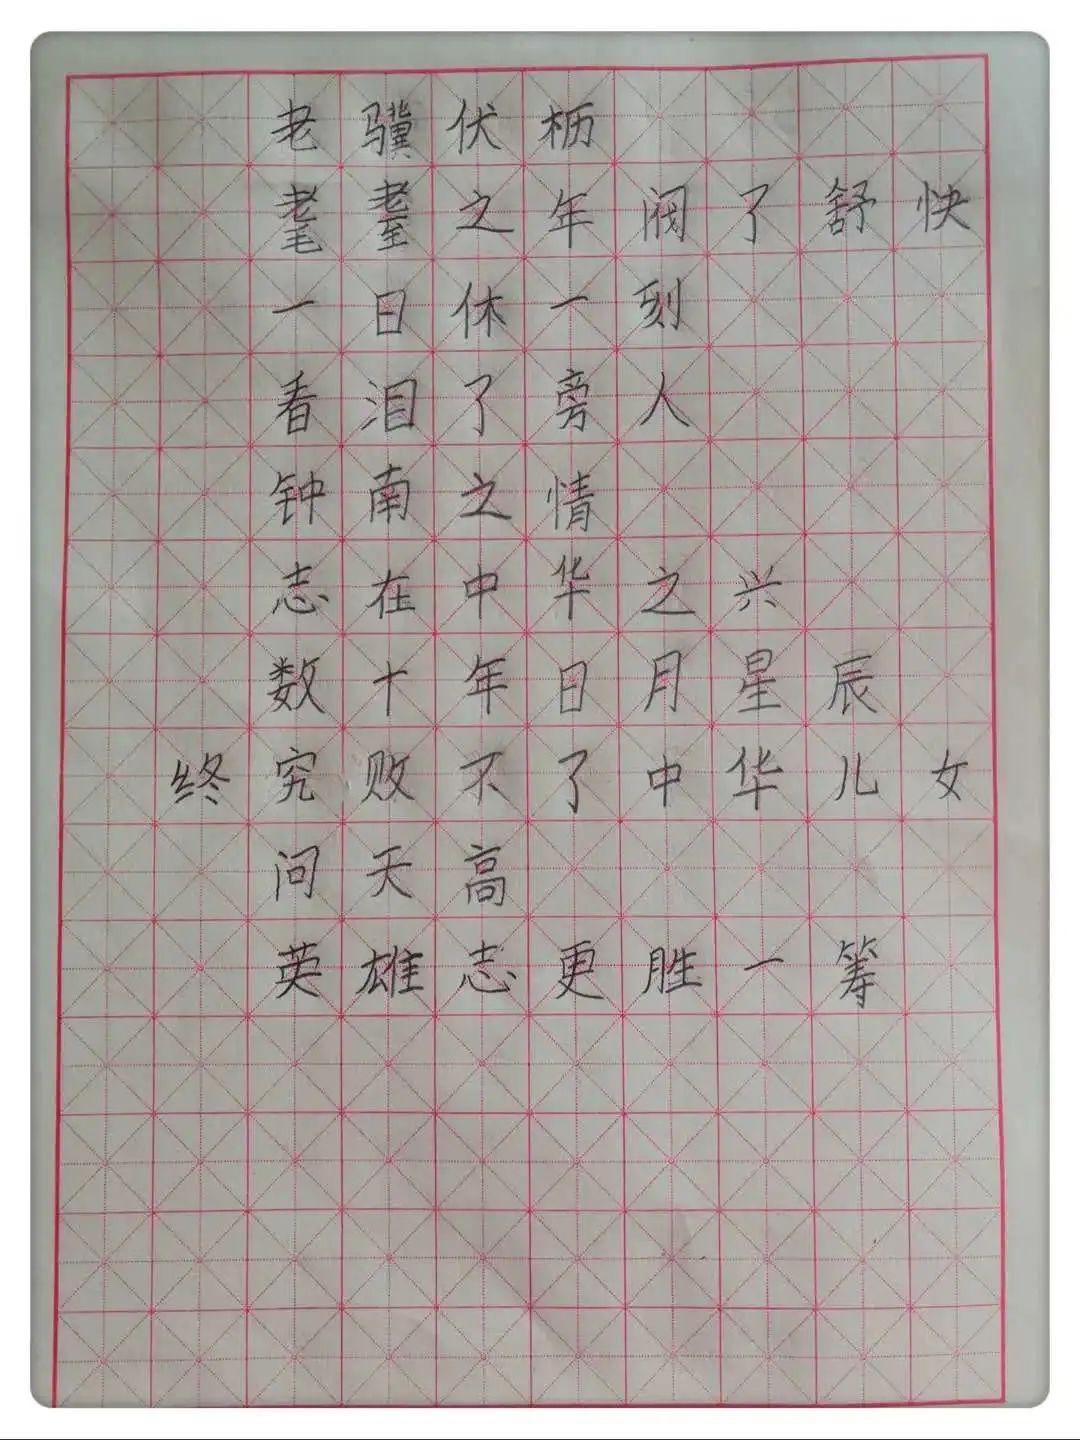 老骥伏枥
耄耋之年阅了舒快
一日休一刻
看泪了旁人
钟南之情
志在中华之兴
数十年日月星辰
终究败不了中华儿女
问天高
英雄志更胜一筹